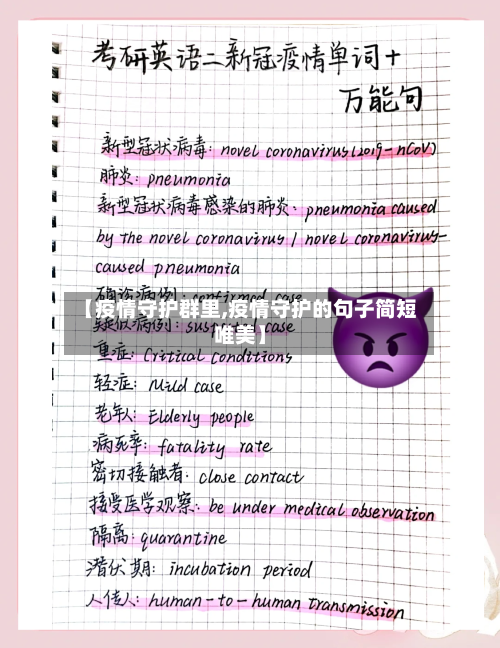 考研英语二新冠疫情单词+
万能句
新型冠状病毒: novel coronavirus(2019-nCoV)
肺炎: pneumonia
新型冠状病毒感染的肺炎: pneumonia caused
by the novel coronavirus / novel coronavirus-
caused pneumonia
确诊病例: confirmed case
【疫情守护群里,疫情守护的句子简短
疑似病例: suspected case
唯美】
重症: Critical conditions
轻症: Mild case
老年人: Elderly people
病死率: fatality rate
密切接触者: close contact
接受医学观察: be under medical observation
隔离: quarantine
潜伏期: incubation period
人传人: human-to-human transmission